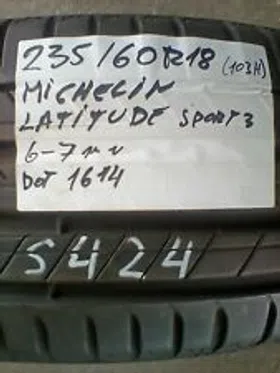 235/60R18 (103H)
MICHELIN
LATITUDE SPORT 3
6-7 мм
DOT 1614
S424